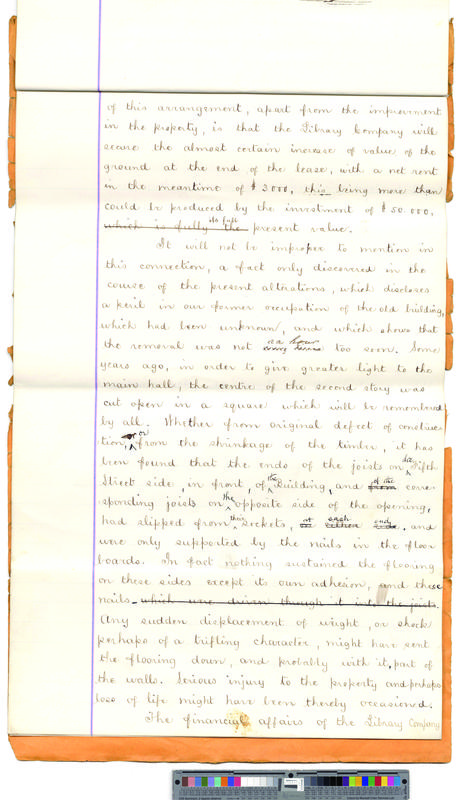 of this arrangement, apart from the improvement
in the property, is that the Library Company will
secure the almost certain increase of value of the
ground at the end of the lease, with a net rent
in the meantime of $3000, this being more than
could be produced by the investment of $50.000,
its full
which is fully the present value.
It will not be improper to mention in
this connection, a fact only discovered in the
course of the present alterations, which discloses
a peril in our former occupation of the old building,
which had been unknown, and which shows that
an hour
the removal was not too soon. Some
years ago, in order to give greater light to the
main hall, the centre of the second story was
cut open in a square which will be remembered
by all. Whether from original defect of construc-
or the
tion, from the shrinkage of the timber, it has
been found that the ends of the joists on Fifth
the of the
Street side, in front, of building, and from corre-
the
sponding joists on opposite side of the opening,
their at each end
had slipped from sockets, and
were only supported by the nails in the floor
boards. In fact nothing sustained the flooring
on these sides except its own adhesion, and these
nails which were driven though it into the joists.
Any sudden displacement of wight, or shock
perhaps of a trifling character, might have sent
the flooring down, and probably with it, part of
the walls. Serious injury to the property and perhaps
loss of life might have been thereby occasioned.
The financial affairs of the Library Company